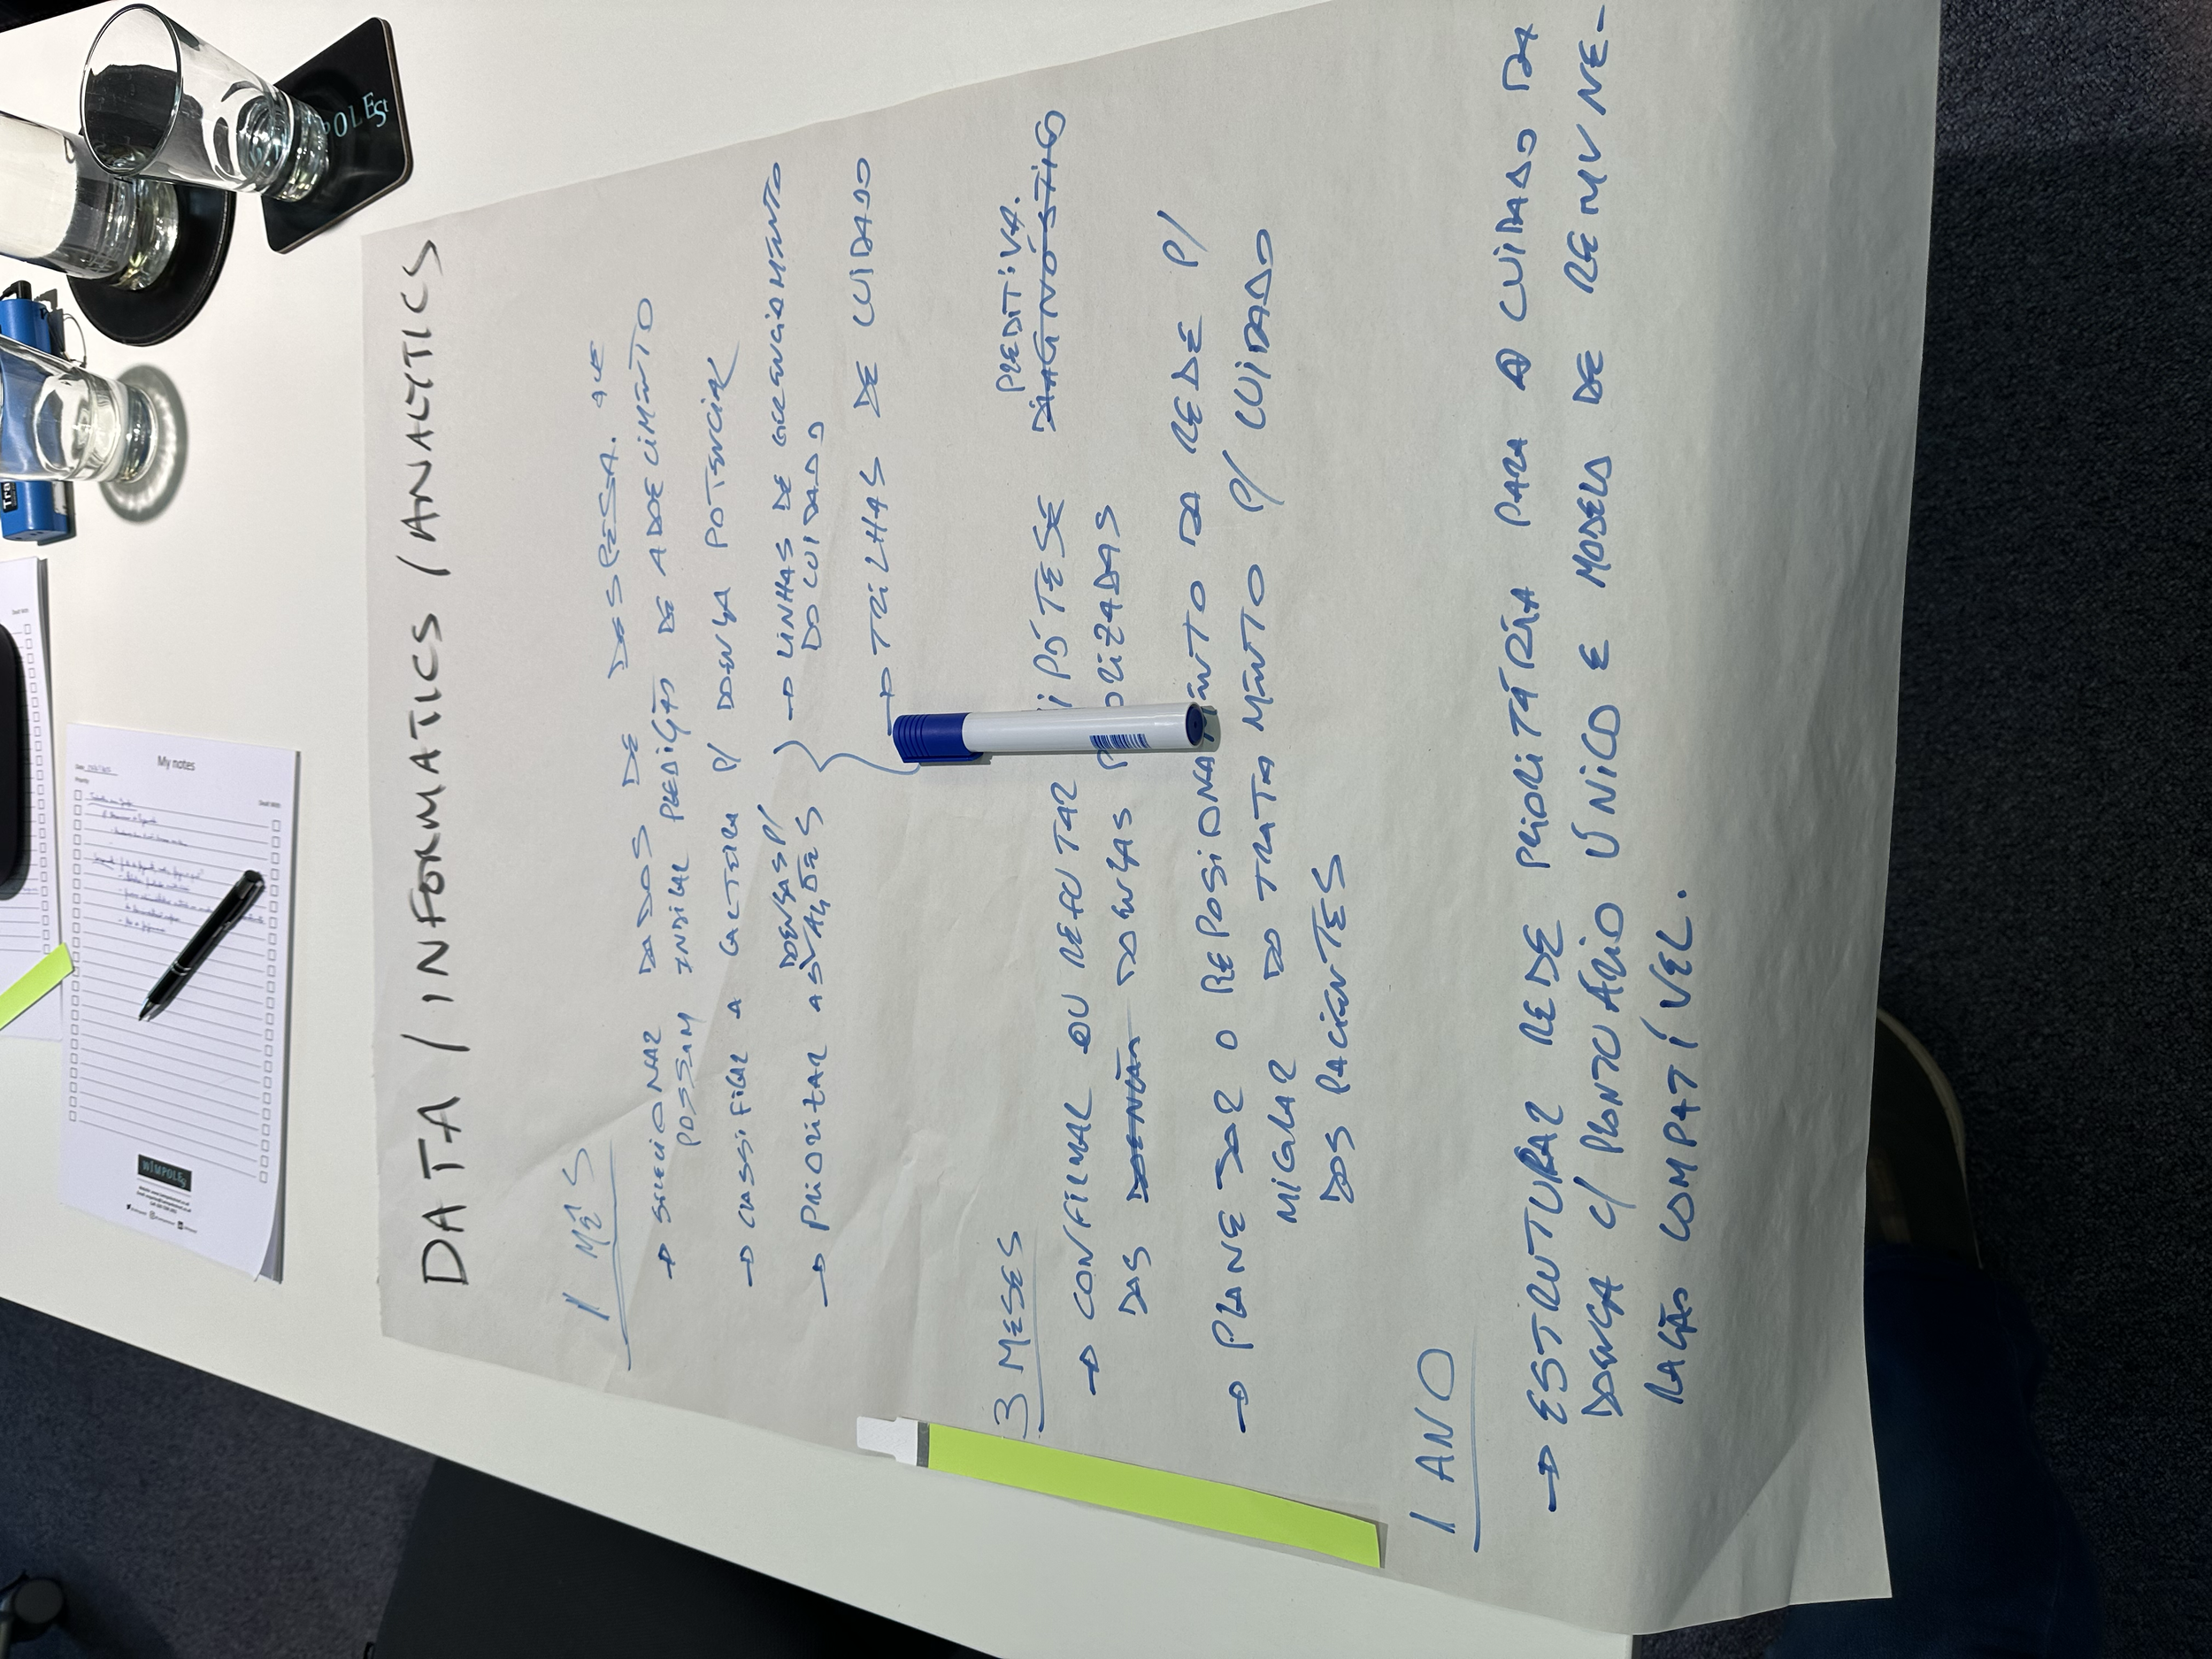 DATA / INFORMATICS / ANALYTICS
1 MÊS
→ SELECIONAR DADOS DE DESPESA. QUE
POSSAM INDICAR PREDIÇÃO DE ADOECIMENTO
→ CLASSIFICAR A CARTEIRA P/ DOENÇA POTENCIAL
DOENÇAS P/
→ PRIORIZAR AS AÇÕES → LINHAS DE GERENCIAMENTO
DO CUIDADO
→ TRILHAS DE CUIDADO
3 MESES
PREDITIVA.
→ CONFIRMAR OU REFUTAR HIPÓTESE DIAGNÓSTICA
DAS DOENÇAS PRIORIZADAS
→ PLANEJAR O REPOSICIONAMENTO DA REDE P/
MIGRAR DO TRATAMENTO P/ CUIDADO
DOS PACIENTES
1 ANO
→ ESTRUTURAR REDE PRIORITÁRIA PARA O CUIDADO DA
DOENÇA C/ PRONTUÁRIO ÚNICO E MODELO DE REMUNE-
RAÇÃO COMPATÍVEL.
My notes
Date
Priority
Dealt With
Dealt With
WIMPOLE St
POLESt
Tra